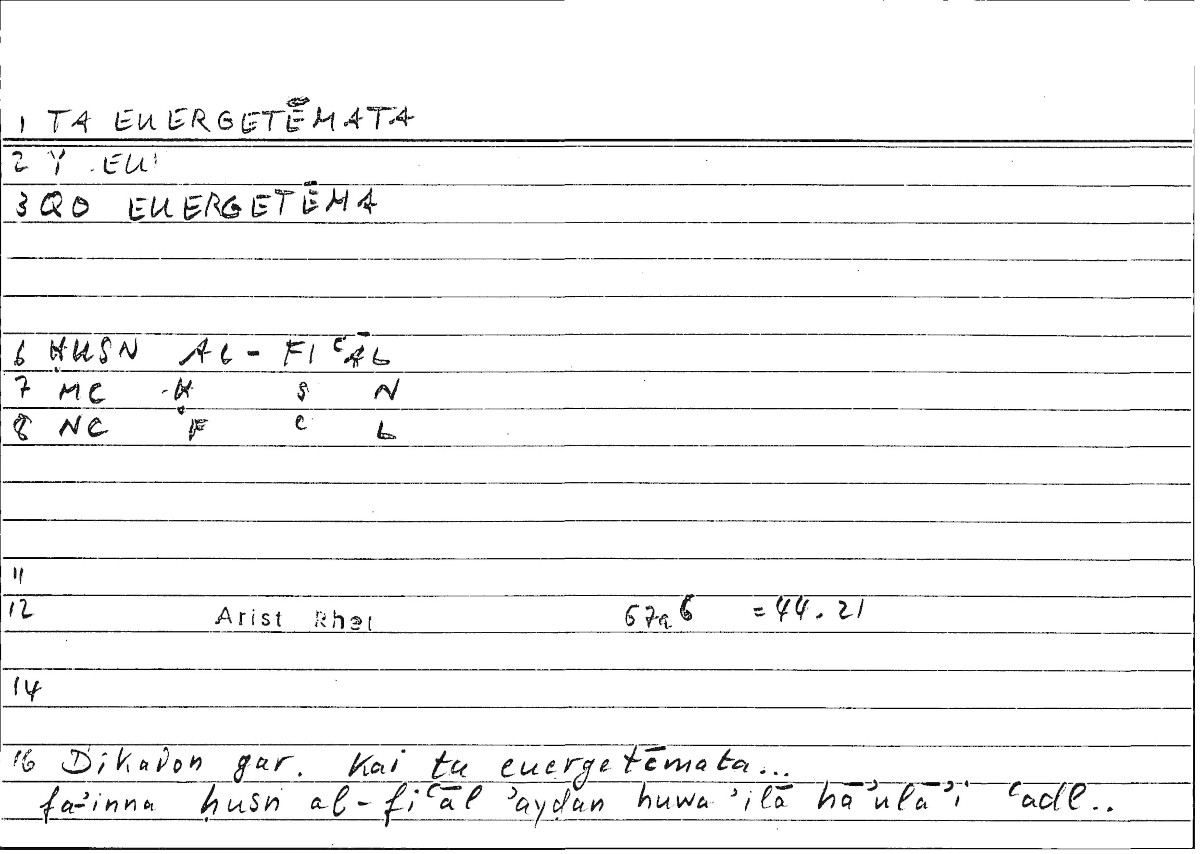 1 TA EUERGETĒMATA
2 Y EU
3 QO EUERGETĒMA
6 ḤUSN AL-FIʿĀL
7 MC Ḥ S N
8 NC F ʿ L
11
12 Arist Rhet 67a6 =44.21
14
16 Dikaion gar. Kai ta euergetēmata...
fa-ʾinna ḥusn al-fiʿāl ʾayḍan huwa ʾilā hāʾulāʾi ʿadl..